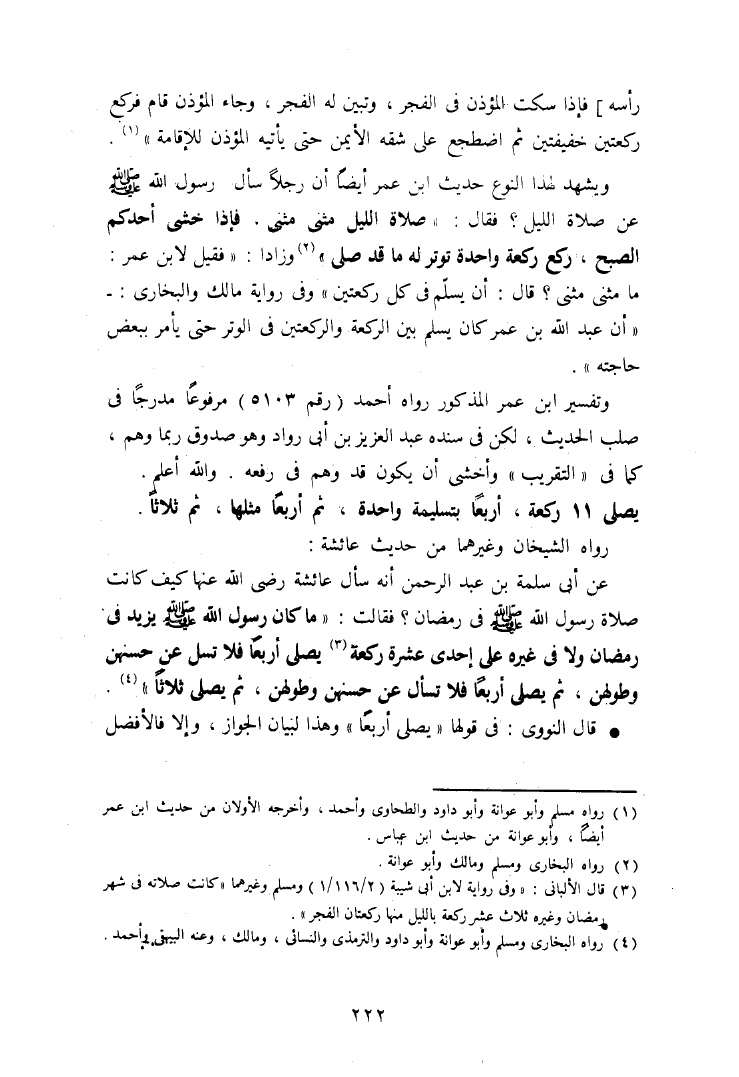 رأسه ] فإذا سكت المؤذن فى الفجر ، وتبين له الفجر ، وجاء المؤذن قام فركع
ركعتين خفيفتين ثم اضطجع على شقه الأيمن حتى يأتيه المؤذن للإقامة » (١) .
ويشهد لهذا النوع حديث ابن عمر أيضاً أن رجلاً سأل رسول الله ﷺ
عن صلاة الليل ؟ فقال : « صلاة الليل مثنى مثنى . فإذا خشى أحدكم
الصبح ، ركع ركعة واحدة توتر له ما قد صلى » (٢) وزادا : « فقيل لابن عمر :
ما مثنى مثنى ؟ قال : أن يسلّم فى كل ركعتين » وفى رواية مالك والبخارى : ـ
« أن عبد الله بن عمر كان يسلم بين الركعة والركعتين فى الوتر حتى يأمر ببعض
حاجته » .
وتفسير ابن عمر المذكور رواه أحمد ( رقم ٥١٠٣ ) مرفوعًا مدرجًا فى
صلب الحديث ، لكن فى سنده عبد العزيز بن أبى رواد وهو صدوق ربما وهم ،
كما فى « التقريب » وأخشى أن يكون قد وهم فى رفعه . والله أعلم .
يصلى ١١ ركعة ، أربعًا بتسليمة واحدة ، ثم أربعًا مثلها ، ثم ثلاثاً .
رواه الشيخان وغيرهما من حديث عائشة :
عن أبى سلمة بن عبد الرحمن أنه سأل عائشة رضى الله عنها كيف كانت
صلاة رسول الله ﷺ فى رمضان ؟ فقالت : « ما كان رسول الله ﷺ يزيد فى
رمضان ولا فى غيره على إحدى عشرة ركعة (٣) يصلى أربعًا فلا تسل عن حسنهن
وطولهن ، ثم يصلى أربعًا فلا تسأل عن حسنهن وطولهن ، ثم يصلى ثلاثاً » (٤) .
● قال النووى : فى قولها « يصلى أربعًا » وهذا لبيان الجواز ، وإلا فالأفضل
(١) رواه مسلم وأبو عوانة وأبو داود والطحاوى وأحمد ، وأخرجه الأولان من حديث ابن عمر
أيضاً ، وأبو عوانة من حديث ابن عباس .
(٢) رواه البخارى ومسلم ومالك وأبو عوانة .
(٣) قال الألبانى : « وفى رواية لابن أبى شيبة ( ١/١١٦/٢ ) ومسلم وغيرهما « كانت صلاته فى شهر
رمضان وغيره ثلاث عشر ركعة بالليل منها ركعتان الفجر » .
(٤) رواه البخارى ومسلم وأبو عوانة وأبو داود والترمذى والنسائى ، ومالك ، وعنه البيهقى وأحمد .
٢٢٢